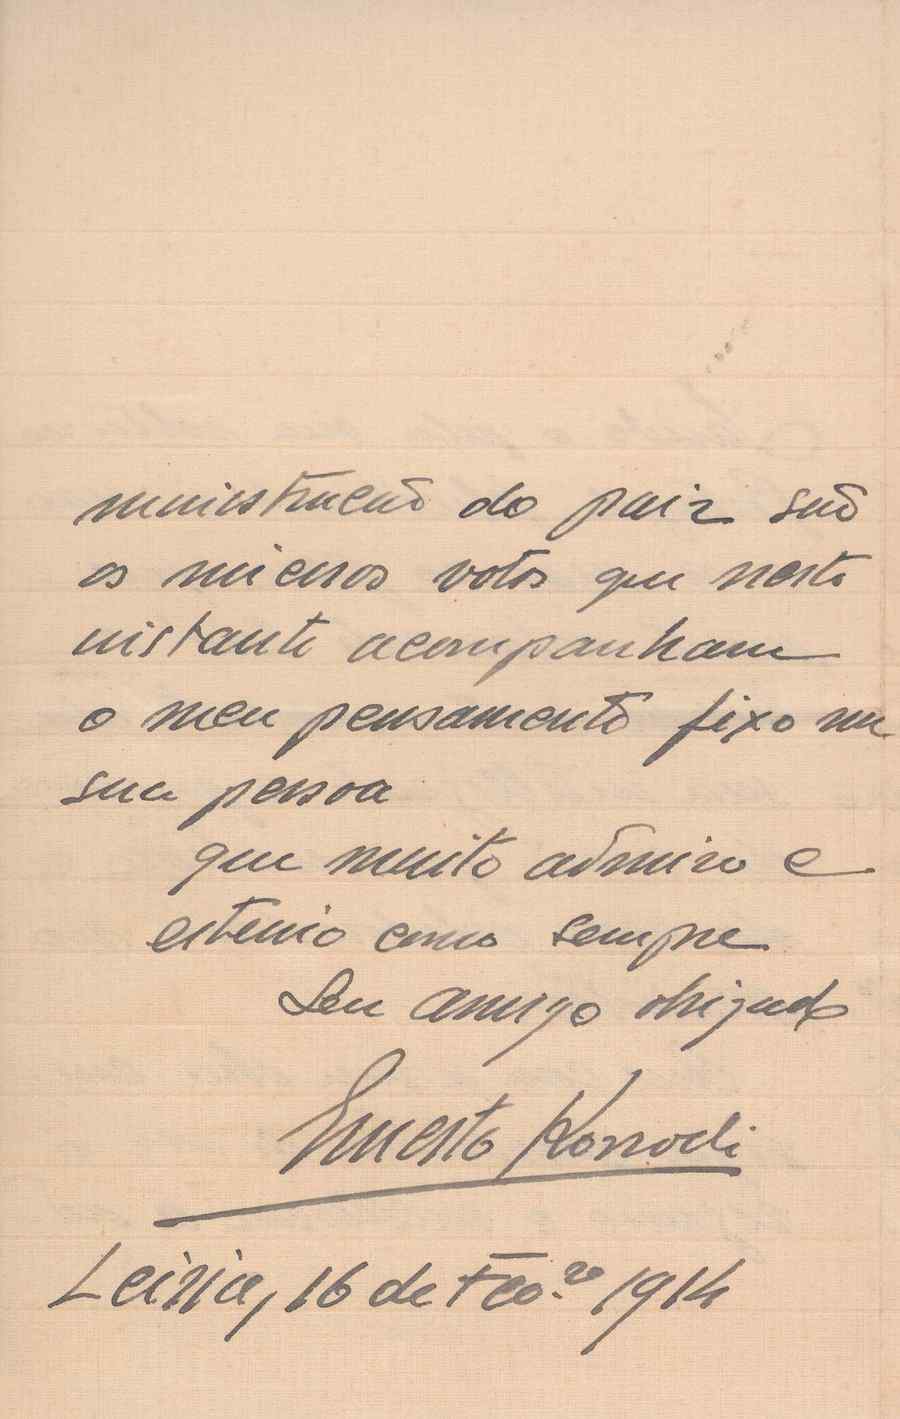 ministração do paiz são
os meus votos que neste
instante acompanham
o meu pensamento fixo na
sua pessoa
que muito admiro e
estimo como sempre
Seu amigo obrigado
Ernesto Korrodi
Leiria, 16 de Febro. 1914